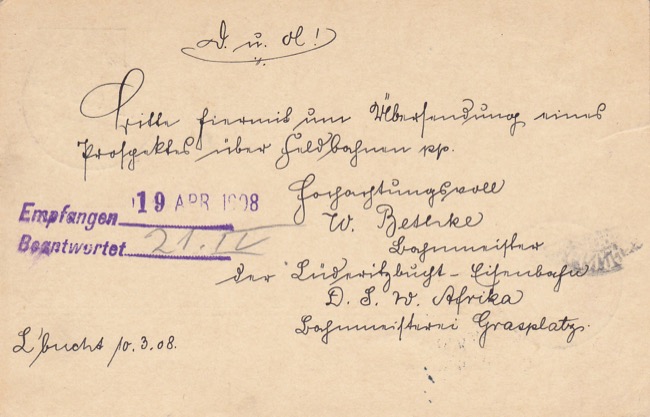 D. u. O!
Bitte hiermit um Übersendung eines
Prospektes über Feldbahnen pp.
Hochachtungsvoll
W. Bethke
Bahnmeister
der Lüderitzbucht-Eisenbahn
D. S. W. Afrika
Bahnmeisterei Grasplatz.
Empfangen 19 APR 1908
Beantwortet 21. IV
L'bucht 10.3.08.